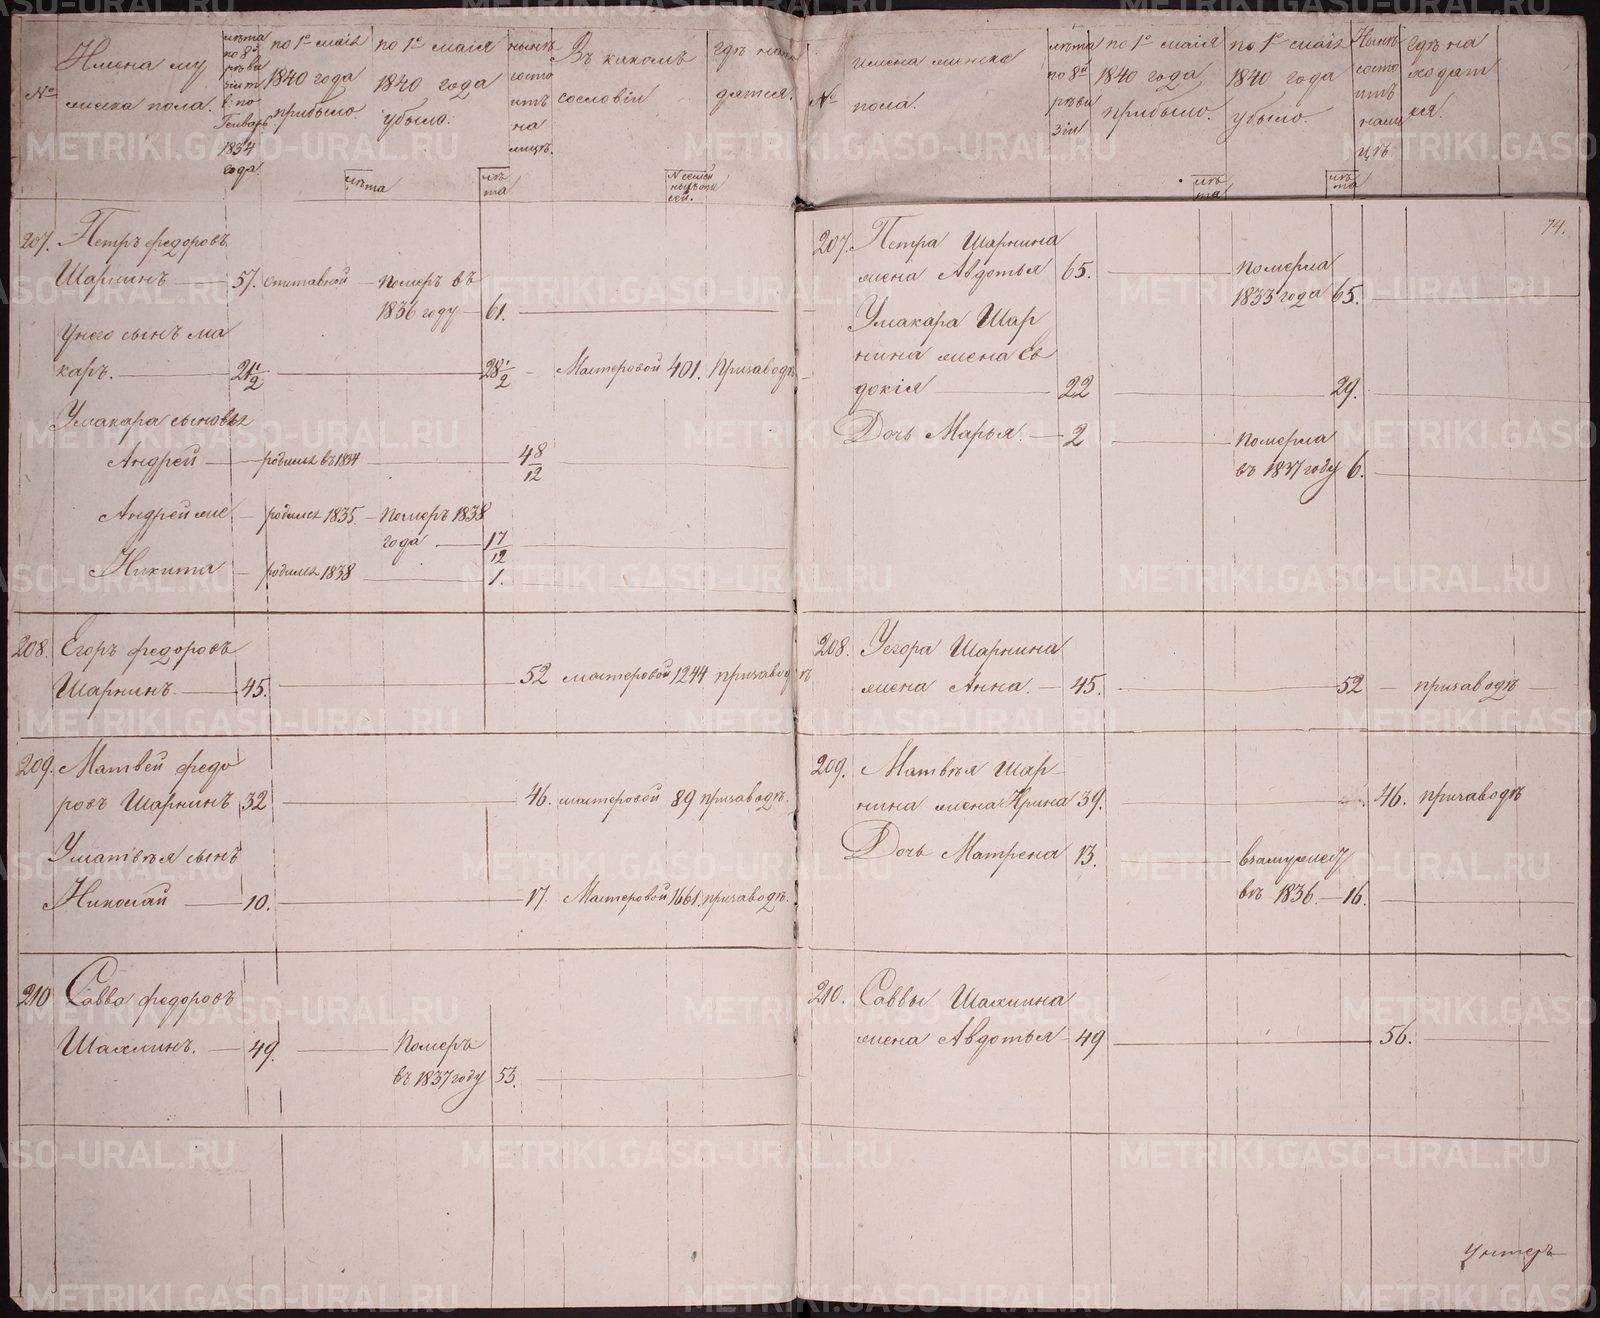 №
Имена му
жеска пола.
лѣта
по 8й
реви
зіи
с. по
Генварь
1834
года
по 1е маія
1840 года
прибыло
лѣта
по 1е маія
1840 года
убыло.
лѣ
та
нынѣ
состо
итъ
на
лицѣ.
Въ какомъ
сословіи
N семей
гдѣ нахо
дятся.
207. Петръ Федоровъ
Шарнинъ — 57. отставной — померъ въ
1836 году — 61.
У него сынъ Ма
каръ. — 21 1/2 — 28 1/2 — Мастеровой 401. При заводѣ
У Макара сыновья
Андрей — родился въ 1834 — 48/12
Андрей же — родился 1835 — померъ 1838
года — 17/12
Никита — родился 1838 — 1.
208. Егоръ Федоровъ
Шарнинъ. — 45. — 52 мастеровой 1244 при заводѣ
209. Матвей Федо
ровъ Шарнинъ 32 — 46. мастеровой 89 при заводѣ.
У Матвѣя сынъ
Николай — 10. — 17. Мастеровой 1661. при заводѣ.
210 Савва Федоровъ
Шахминъ. — 49. — Померъ
въ 1837 году 53.
№
имена женска
пола.
лѣта
по 8й
реви
зіи
по 1е маія
1840 года
прибыло.
лѣ
та
по 1е маія
1840 года
убыло.
лѣ
та
Нынѣ
состо
итъ
нали
цѣ.
гдѣ на
ходят
ся.
74.
207. Петра Шарнина
жена Авдотья 65. — померла
1833 года 65.
У Макара Шар
нина жена Ев
докія — 22 — 29.
Дочь Марья. — 2 — померла
въ 1837 году 6.
208. У Егора Шарнина
жена Анна. — 45. — 52 — при заводѣ
209. Матвѣя Шар
нина жена Ирина 39. — 46. при заводѣ
Дочь Матрена 13. — в замужест
въ 1836. — 16.
210. Саввы Шахмина
жена Авдотья — 49 — 56.
Унтеръ
METRIKI.GASO-URAL.RU